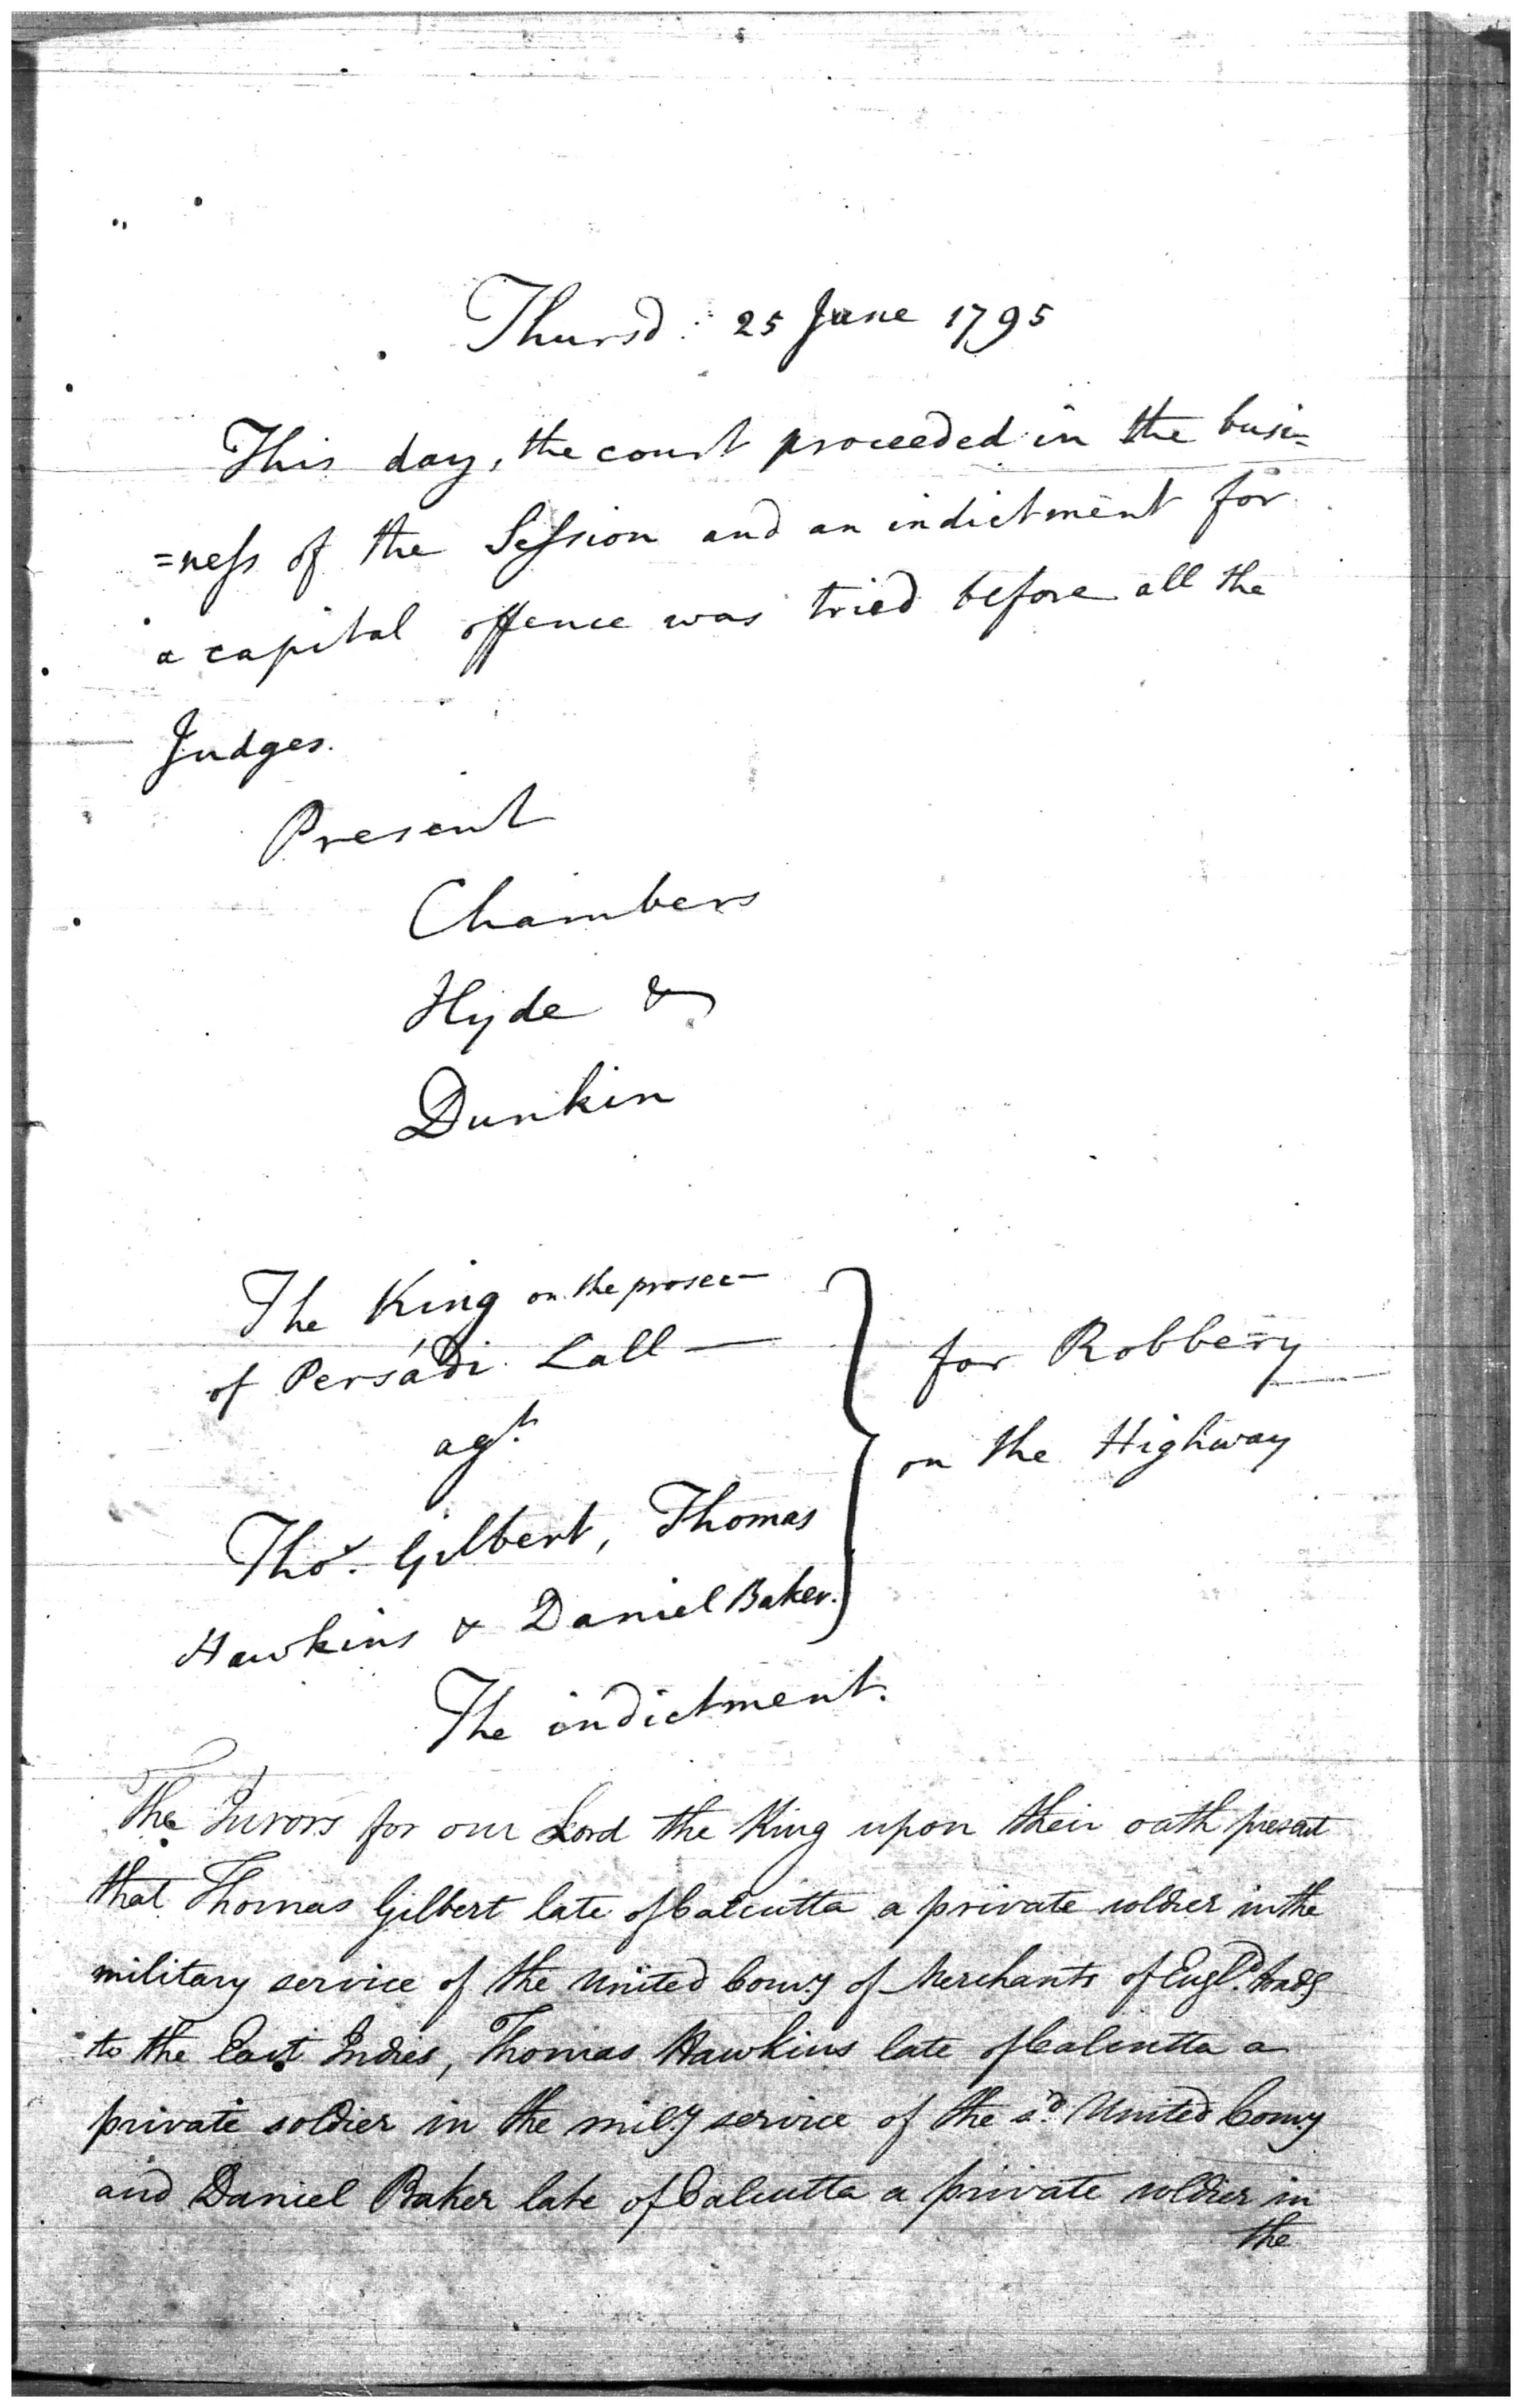 Thursd: 25 June 1795
This day, the court proceeded in the busi=
=neſs of the Seſsion and an indictment for
a capital offence was tried before all the
Judges.
Present
Chambers
Hyde &
Dunkin
The King on the prosec—
of Persádi Lall —
agt.
Thos. Gilbert, Thomas
Hawkins & Daniel Baker.
for Robbery
on the Highway
The indictment.
The Jurors for our Lord the King upon their oath present
that Thomas Gilbert late of Calcutta a private soldier in the
military service of the United Comy of Merchants of Engld. tradg
to the East Indies, Thomas Hawkins late of Calcutta a
private soldier in the mily service of the sd. United Comy
and Daniel Baker late of Calcutta a private soldier in
the